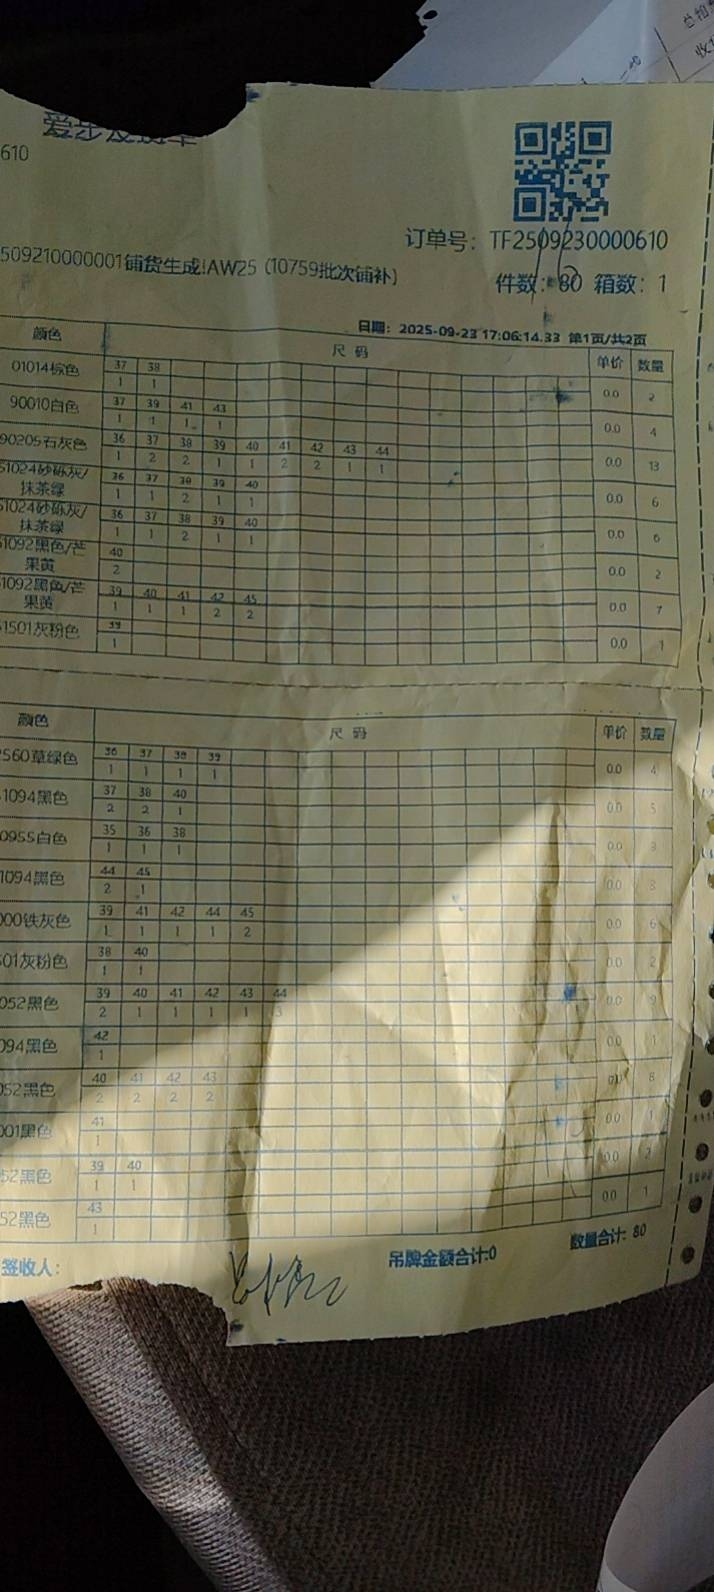 610
订单号: TF2509230000610
509210000001铺货生成!AW25 (10759批次铺补)
件数: 80 箱数: 1
日期: 2025-09-23 17:06:14.33 第1页/共2页
颜色 尺 码 单价 数量
01014棕色 37 38 0.0 2
1 1
90010白色 37 39 41 43 0.0 4
1 1 1 1
90205石灰色 36 37 38 39 40 41 42 43 44 0.0 13
1 2 2 1 1 2 2 1 1
51024砂砾灰/抹茶绿 36 37 38 39 40 0.0 6
1 1 2 1 1
51024砂砾灰/抹茶绿 36 37 38 39 40 0.0 6
1 1 2 1 1
1092黑色/芒果黄 40 0.0 2
2
1092黑色/芒果黄 39 40 41 42 45 0.0 7
1 1 1 2 2
1501灰粉色 39 0.0 1
1
颜色 尺 码 单价 数量
2560草绿色 36 37 38 39 0.0 4
1 1 1 1
1094黑色 37 38 40 0.0 5
2 2 1
0955白色 35 36 38 0.0 3
1 1 1
1094黑色 44 45 0.0 3
2 1
000铁灰色 39 41 42 44 45 0.0 6
1 1 1 1 2
501灰粉色 38 40 0.0 2
1 1
052黑色 39 40 41 42 43 44 0.0 9
2 1 1 1 1 3
094黑色 42 0.0 1
1
052黑色 40 41 42 43 0.0 8
2 2 2 2
001黑色 41 0.0 1
1
52黑色 39 40 0.0 2
1 1
52黑色 43 0.0 1
1
签收人: 吊牌金额合计:0 数量合计: 80